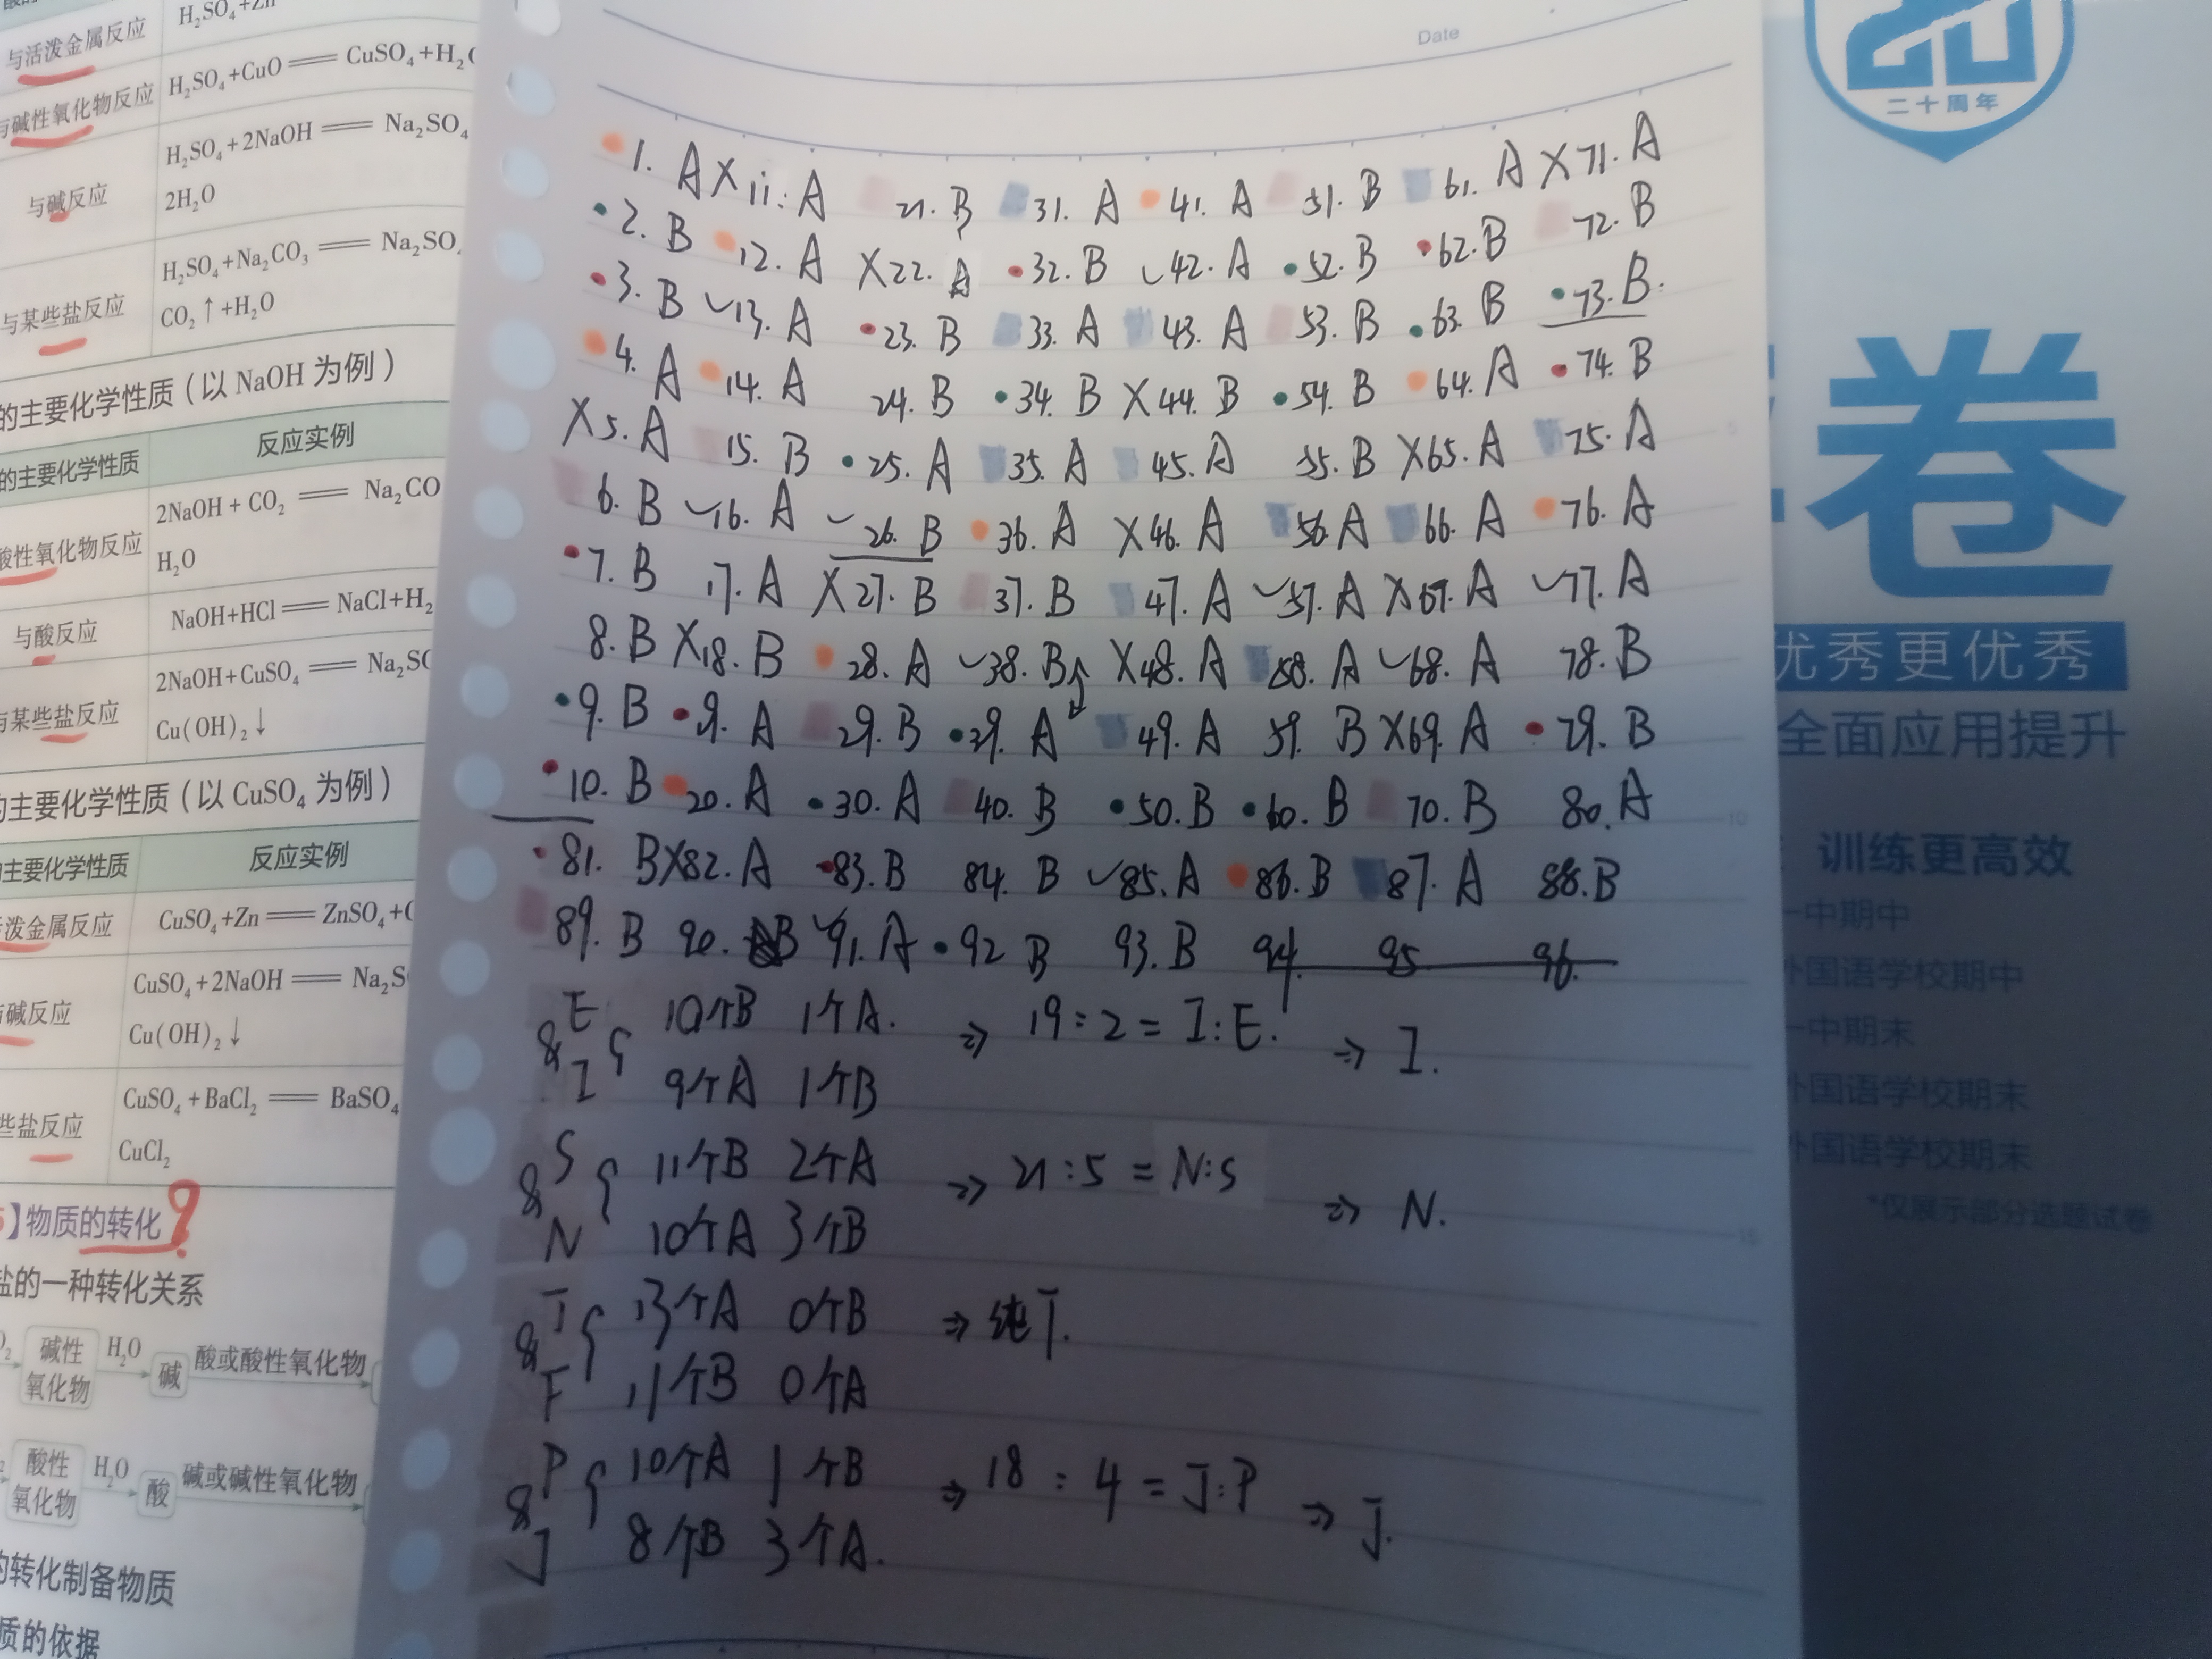 与活泼金属反应
H₂SO₄+Zn
与碱性氧化物反应
H₂SO₄+CuO══CuSO₄+H₂O
与碱反应
H₂SO₄+2NaOH══Na₂SO₄
2H₂O
与某些盐反应
H₂SO₄+Na₂CO₃══Na₂SO
CO₂↑+H₂O
的主要化学性质(以 NaOH 为例)
的主要化学性质 反应实例
酸性氧化物反应
2NaOH+CO₂══Na₂CO
H₂O
与酸反应
NaOH+HCl══NaCl+H₂
与某些盐反应
2NaOH+CuSO₄══Na₂SO
Cu(OH)₂↓
的主要化学性质(以 CuSO₄ 为例)
主要化学性质 反应实例
活泼金属反应
CuSO₄+Zn══ZnSO₄+C
与碱反应
CuSO₄+2NaOH══Na₂S
Cu(OH)₂↓
些盐反应
CuSO₄+BaCl₂══BaSO₄
CuCl₂
】物质的转化?
盐的一种转化关系
碱性氧化物 H₂O 碱 酸或酸性氧化物
酸性氧化物 H₂O 酸 碱或碱性氧化物
的转化制备物质
质的依据
Date
1. A ×11. A 21. B 31. A 41. A 51. B 61. A ×71. A
2. B 12. A ×22. A 32. B ✓42. A 52. B 62. B 72. B
3. B ✓13. A 23. B 33. A 43. A 53. B 63. B 73. B.
4. A 14. A 24. B 34. B ×44. B 54. B 64. A 74. B
×5. A 15. B 25. A 35. A 45. A 55. B ×65. A 75. A
6. B ✓16. A ✓26. B 36. A ×46. A 56. A 66. A 76. A
7. B 17. A ×27. B 37. B 47. A ✓57. A ×67. A ✓77. A
8. B ×18. B 28. A ✓38. B ×48. A 58. A ✓68. A 78. B
9. B 19. A 29. B 39. A 49. A 59. B ×69. A 79. B
10. B 20. A 30. A 40. B 50. B 60. B 70. B 80. A
81. B ×82. A 83. B 84. B ✓85. A 86. B 87. A 88. B
89. B 90. B ✓91. A 92 B 93. B 94. 95. 96.
E 10个B 1个A. ⇒ 19:2=I:E. ⇒ I.
& I 9个A 1个B
S 11个B 2个A ⇒ 21:5=N:S ⇒ N.
& N 10个A 3个B
T 13个A 0个B ⇒ 纯T.
& F 11个B 0个A
P 10个A 1个B ⇒ 18:4=J:P ⇒ J.
& J 8个B 3个A.
二十周年
卷
优秀更优秀
全面应用提升
训练更高效
一中期中
外国语学校期中
一中期末
外国语学校期末
外国语学校期末
*仅展示部分选题试卷